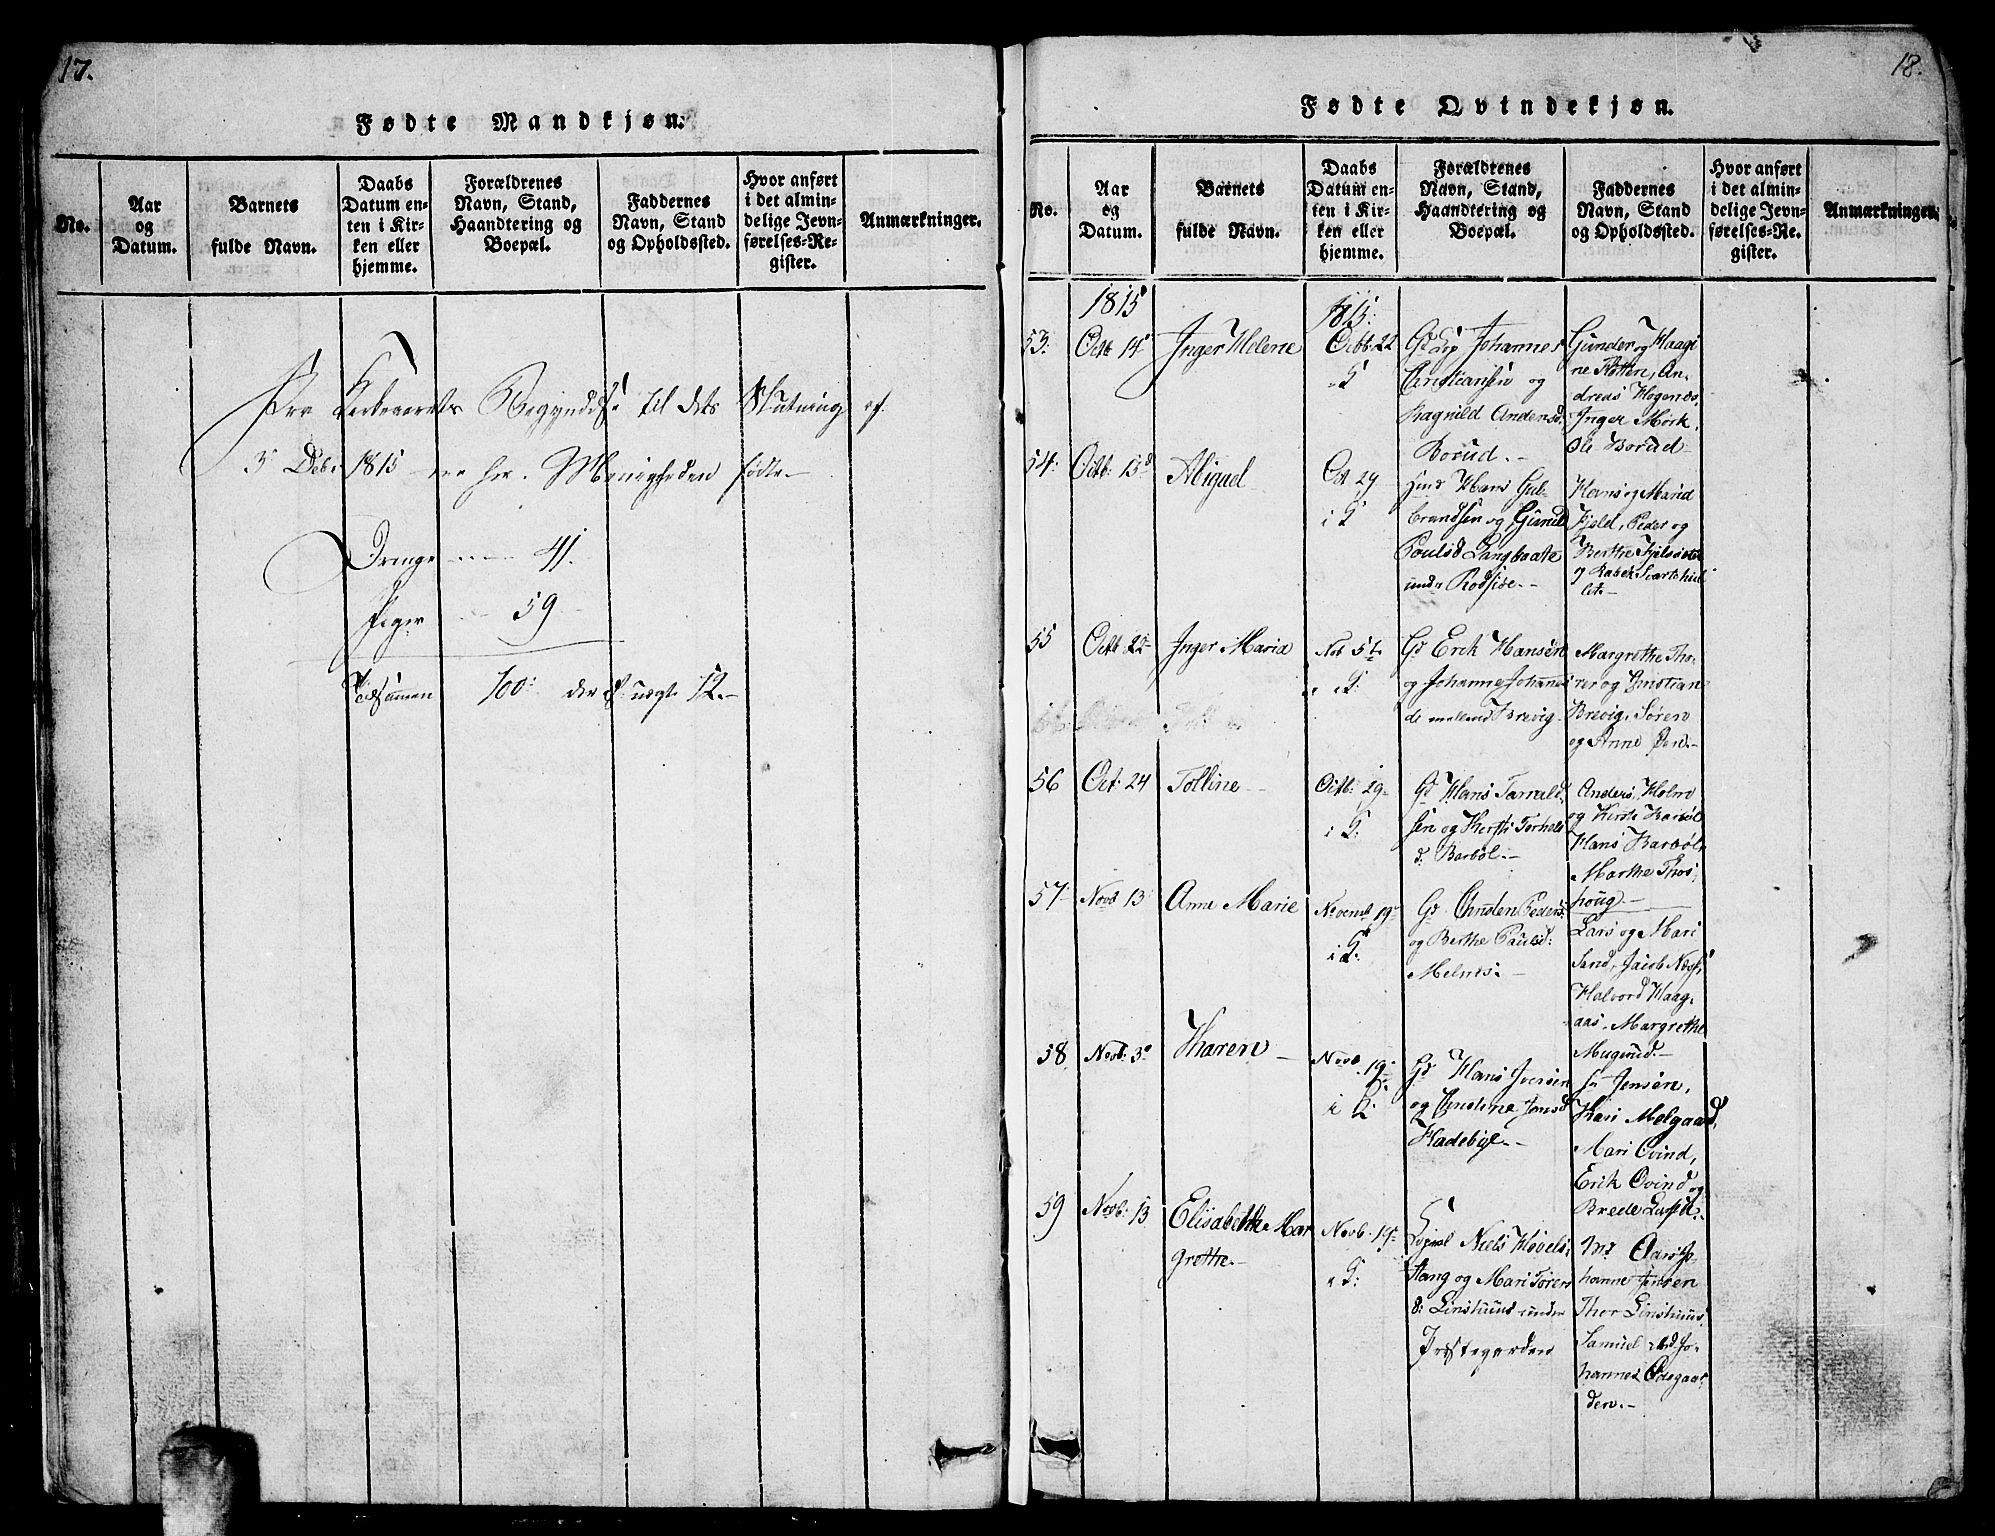 17.
Fødte Mandkjøn.
No.
Aar
og
Datum.
Barnets
fulde Navn.
Daabs
Datum en-
ten i Kir-
ken eller
hjemme.
Forældrenes
Navn, Stand,
Haandtering og
Boepæl.
Faddernes
Navn, Stand
og Opholdssted.
Hvor anført
i det almin-
delige Jevn-
førelses-Re-
gister.
Anmærkninger.
Fra Kirkeaarets Begyndelse til dets Slutning
3 Deb. 1815 ere her i Menigheden fødte
Drenge 41.
Piger 59
Tilsammen 100: der af uægte 12.-
18.
Fødte Qvindekjøn.
No.
Aar
og
Datum.
Barnets
fulde Navn.
Daabs
Datum en-
ten i Kir-
ken eller
hjemme.
Forældrenes
Navn, Stand,
Haandtering og
Boepæl.
Faddernes
Navn, Stand
og Opholdssted.
Hvor anført
i det almin-
delige Jevn-
førelses-Re-
gister.
Anmærkninger.
1815
1815.
53. Octb 14 Inger Helene Octb. 22
Johannes
Christiansen og
Ragnild Andersd.
Borud.-
Gunder og Haagi
ne Floten, An-
dreas Hogenss,
Inger Mørk,
Ole Borud
54. Octb. 15 Abigael Oct 29
i
Hans Gul-
brandsen og Gunild
Poulsd Langbraate
under Rodsjøe.-
Hans og Maria
Fjeld, Peder og
Berthe
55 Octb 22 Inger Maria Nob 5t.
Gd Erik Hansen
og Johanne Johannes
Brevig
Margrethe Tho-
rer og Christian
Brevig, Søren
og Anne
56 Oct: 24 Tolline Octb: 29
i
Gd Hans Tarrald
sen og Kersti Torkels
d. Barbøl.-
Anders Holm
og Kirsti Barbøl
Hans Barbøl
Marthe Thos-
houg.-
57 Novb 13 Anne Marie Novemb 19
i
Gd Christen Peders.
og Berthe Paulsd:
Melnes.-
Lars og Mari
Sand, Jacob Næss,
Halvord Haag-
aas, Margrethe
Mugerud.-
58. Novb. 3 Karen Novb. 19
i
Gd Hans Iversen
og Christine Jensd
Hadebye.-
Jensen,
Kari Melgaard,
Mari Qvind,
Erik Qvind og
Brede
59 Novb: 13 Elisabethe Mar
grethe.-
Novb. 19
Niels Høvels-
stang og Mari Torers
d: Linstuus under
Prestegarden
Aars Jo-
hanne Jensen
Thor Linstuus,
Samuel Jo-
hannes Odegaar-
den.-